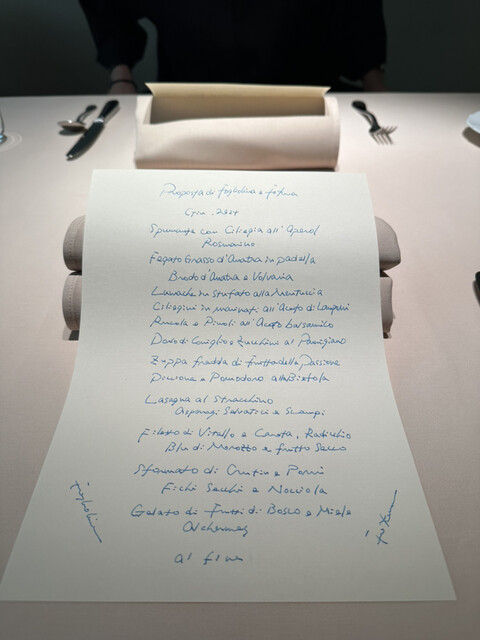 Proposta di fogliolina e
Giu. 2024
Spumante con Ciliegia all'Aperol
Rosmarino
Fegato Grasso d'Anatra in padella
Brodo d'Anatra e Volvaria
Lumache in stufato alla
Ciliegini in marinati all'Aceto di Lamponi
Rucola e Pinoli all'Aceto balsamico
Dorso di Coniglio e Zucchine al Parmigiano
Zuppa fredda di frutto della Passione
Piccione e Pomodoro alla Bietola
Lasagna al Stracchino
Asparagi Selvatici e Scampi
Filetto di Vitello e Carota, Radicchio
Blu di Morozzo e frutto Secco
Sformato di e
Fichi Secchi e Nocciola
Gelato di Frutti di Bosco e Miele
Alchermes
al fine